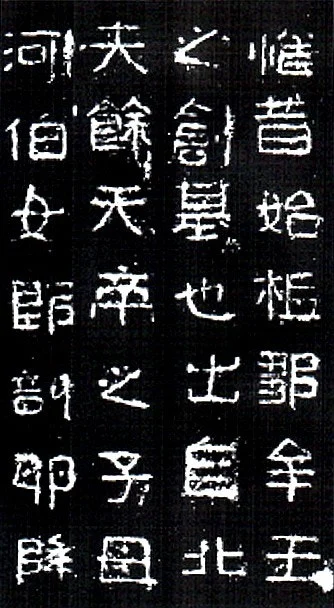 惟昔始祖鄒牟王
之創基也出自北
夫餘天帝之子母
河伯女郎剖卵降